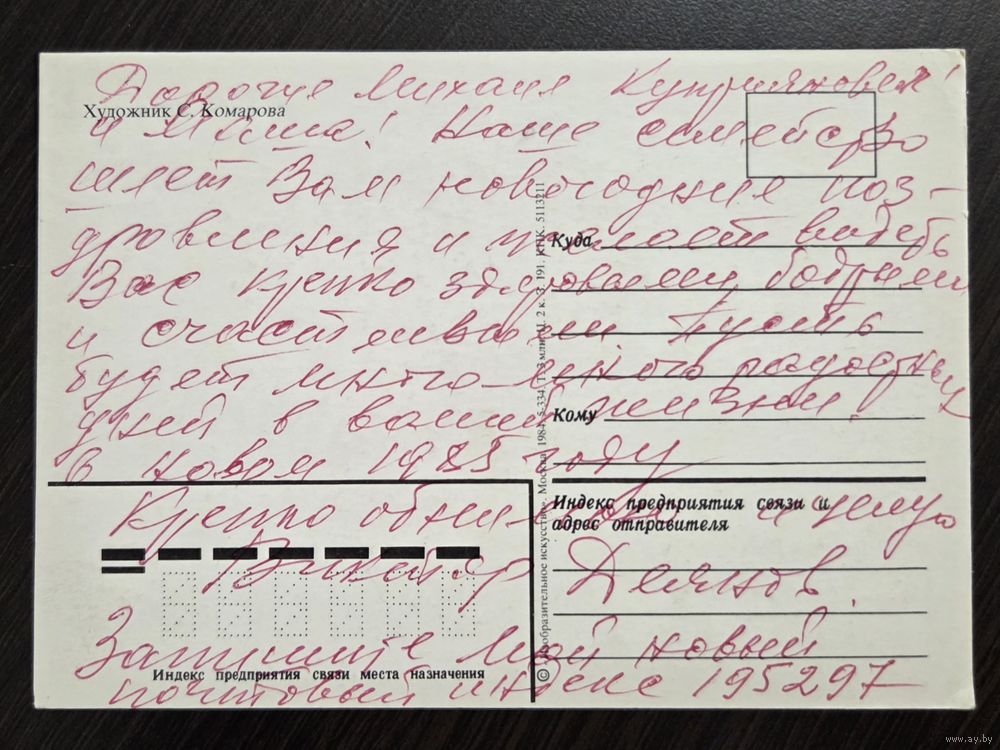 Дорогие Михаил Куприянович!
Художник С. Комарова
и Миша! Наше семейство
шлет Вам новогодние поз-
дровления и желает видеть
Вас крепко здоровыми, бодрыми
и счастливыми. Пусть
будет много-много радостных
дней в вашей жизни.
в новом 1985 году
Крепко обнимаю и целую
Деянов.
Запишите мой новый
почтовый индекс 195297
Куда
Кому
Индекс предприятия связи и
адрес отправителя
Индекс предприятия связи места назначения
© Изобразительное искусство. Москва. 1984. 5-334. Т. 3 млн. Ц. 2 к. З. 191. КПК. 5113211
www.ay.by